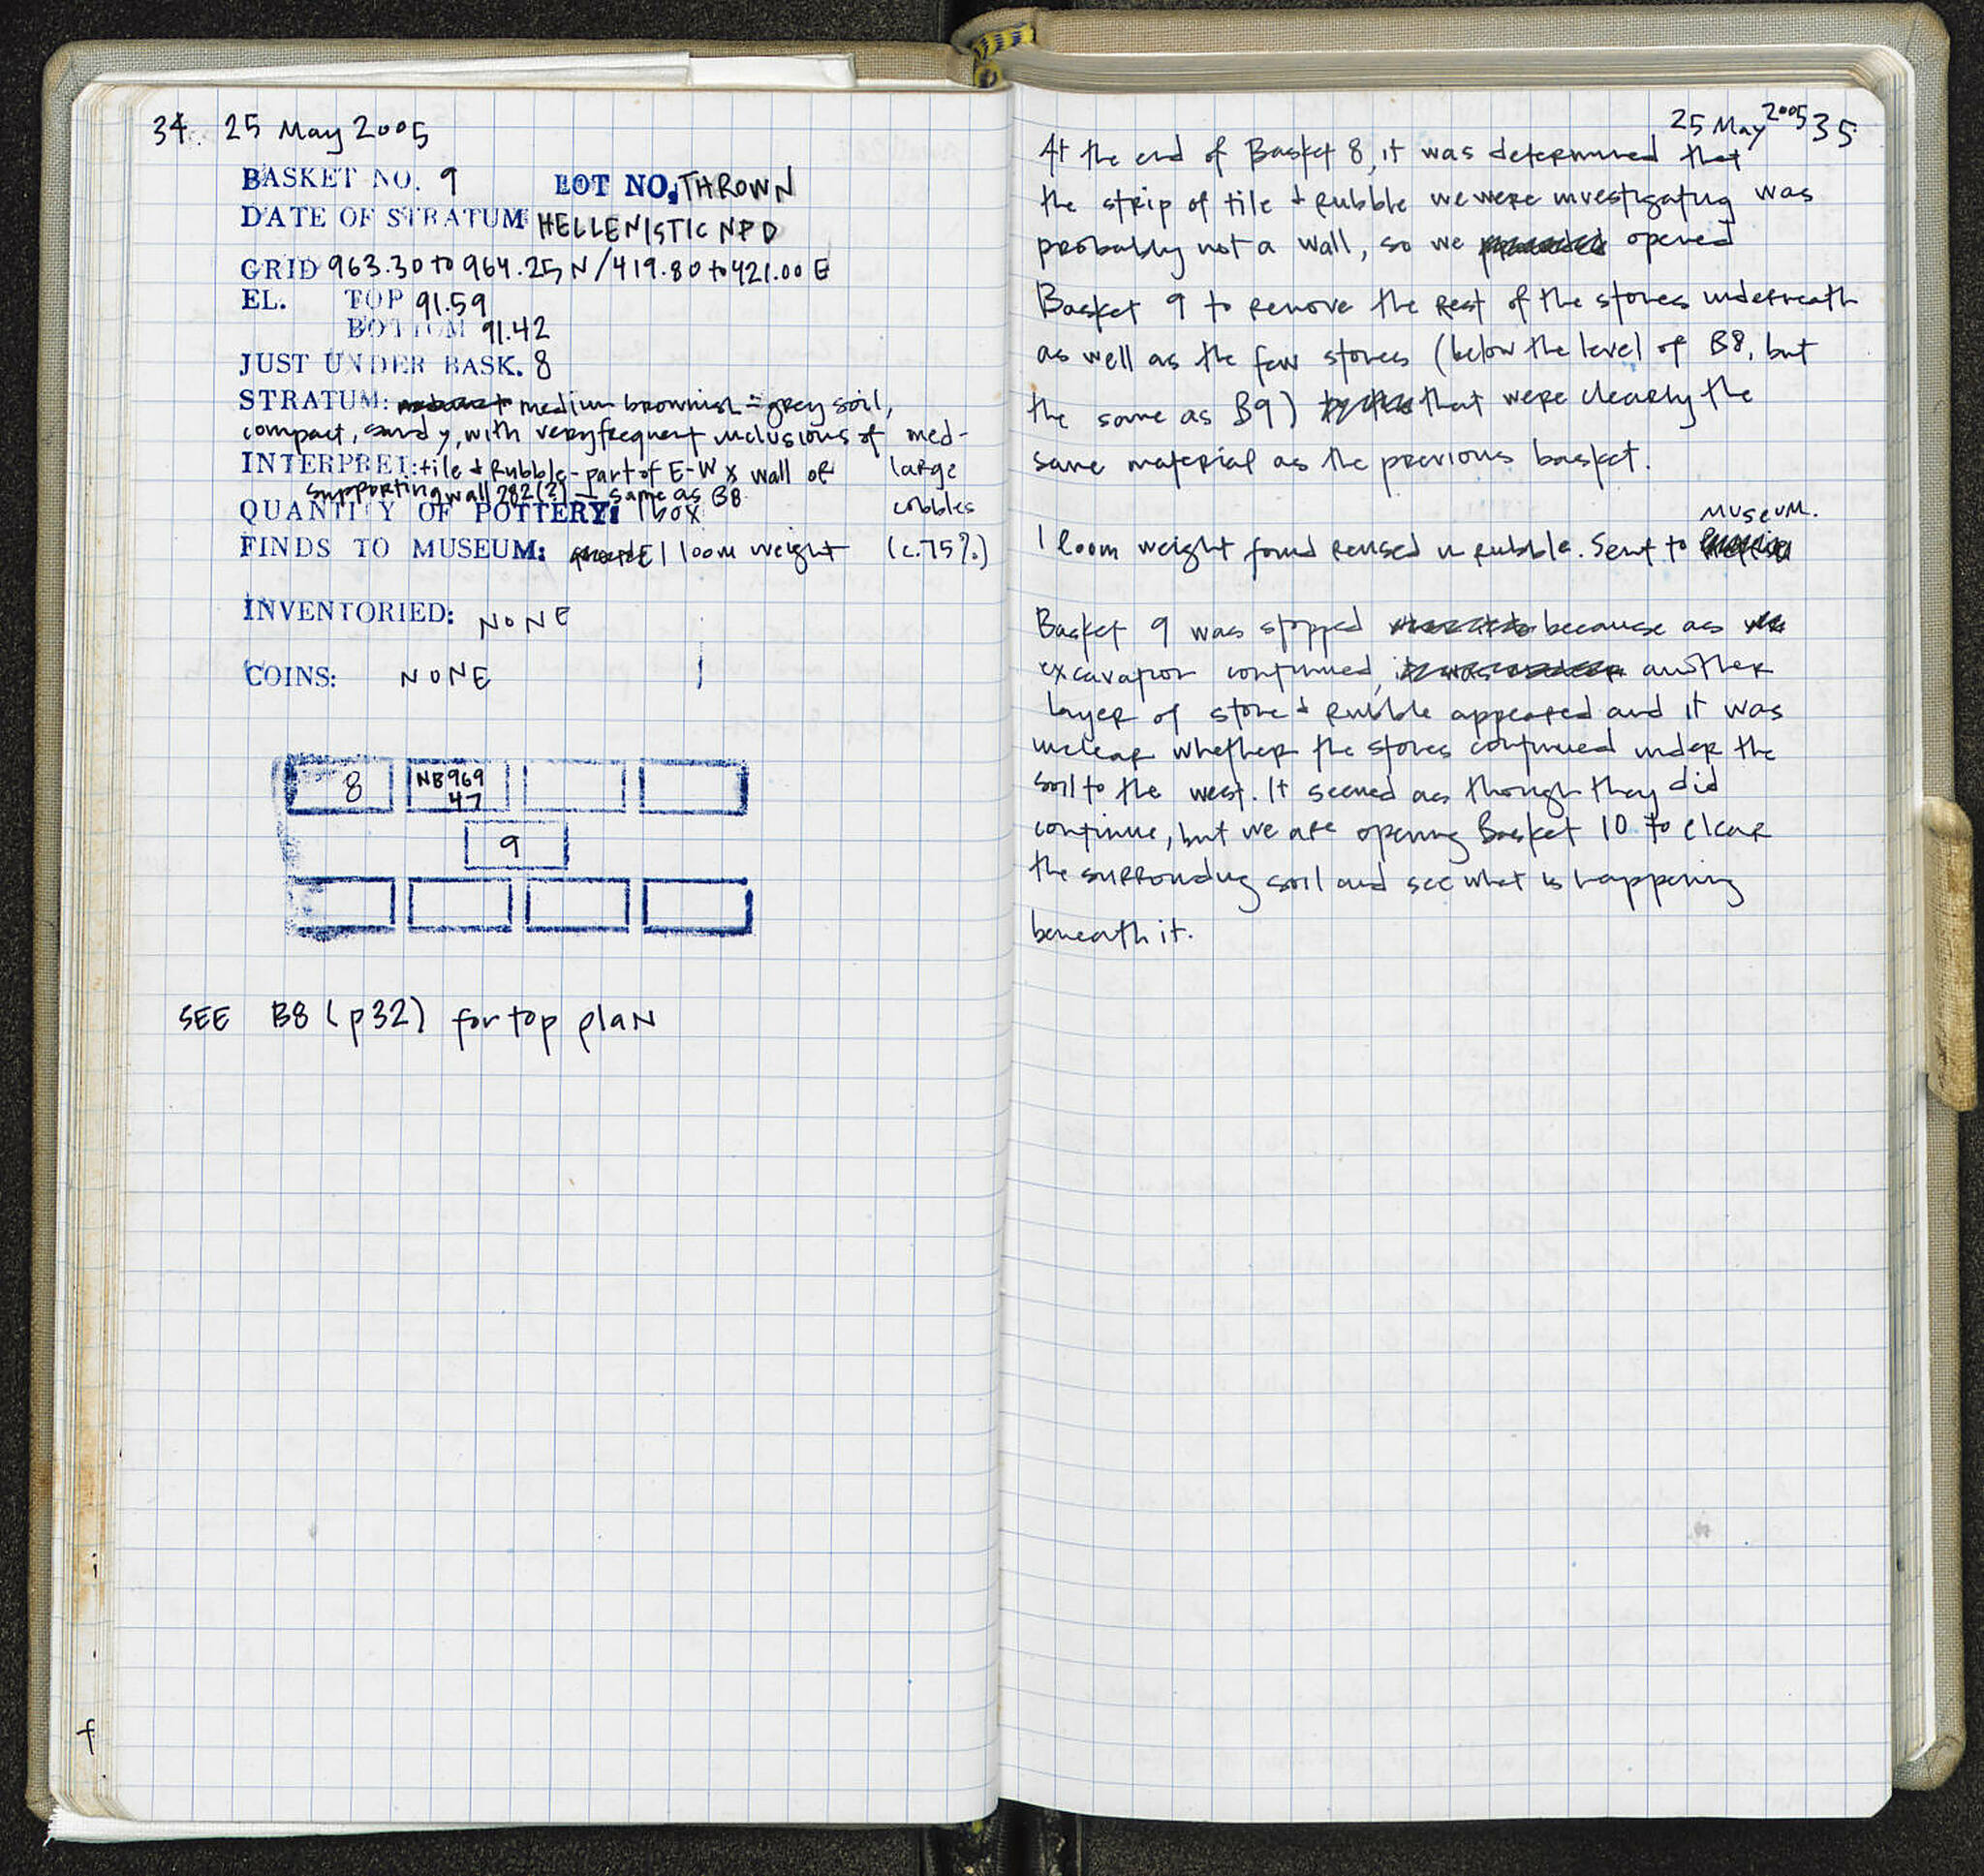 34. 25 May 2005
BASKET NO. 9 LOT NO. THROWN
DATE OF STRATUM HELLENISTIC NPD
GRID 963.30 to 964.25 N / 419.80 to 421.00 E
EL. TOP 91.59
BOTTOM 91.42
JUST UNDER BASK. 8
STRATUM: medium brownish-grey soil,
compact, sandy, with very frequent inclusions of med-
large
cobbles
(c.75%)
INTERPRET: tile + Rubble - part of E-W x wall or
supporting wall 282(?) - same as B8
QUANTITY OF POTTERY: 1 box
FINDS TO MUSEUM: 1 loom weight
INVENTORIED: NONE
COINS: NONE
8 NB969
47
9
SEE B8 (p32) for top plan
25 May 2005 35
At the end of Basket 8, it was determined that
the strip of tile + rubble we were investigating was
probably not a wall, so we opened
Basket 9 to remove the rest of the stones underneath
as well as the few stones (below the level of B8, but
the same as B9) that were clearly the
same material as the previous basket.
1 loom weight found reused in rubble. Sent to museum.
Basket 9 was stopped because as
excavation continued, another
layer of stone + rubble appeared and it was
unclear whether the stones continued under the
soil to the west. It seemed as though they did
continue, but we are opening Basket 10 to clear
the surrounding soil and see what is happening
beneath it.